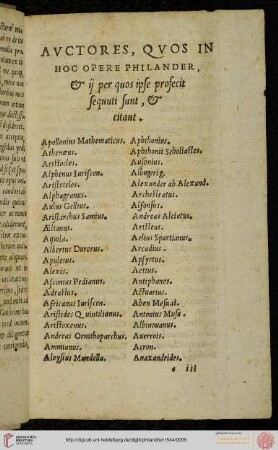 AVCTORES, QVOS IN
HOC OPERE PHILANDER,
& ij per quos ipse profecit
sequuti sunt, &
citant.
Apollonius Mathematicus.
Athenæus.
Aristocles.
Alphenus Iuriscon.
Aristoteles.
Alphagranus.
Aulus Gellius.
Aristarchus Samius.
Ælianus.
Aquila.
Albertus Durerus.
Apuleius.
Alexis.
Asconius Pedianus.
Adrastus.
Africanus Iuriscon.
Aristides Quintilianus.
Aristoxenus.
Andreas Ornithoparchus.
Ammianus.
Aloysius Mundella.
Aphthonius.
Aphthonii Scholiastes.
Ausonius.
Albugerig.
Alexander ab Alexand.
Archestratus.
Alfonsius.
Andreas Alciatus.
Aristeas.
Aelius Spartianus.
Arcadius.
Apsyrtus.
Aetius.
Antiphanes.
Actuarius.
Aben Mesuai.
Antonius Musa.
Albinouanus.
Auerrois.
Acron.
Anaxandrides.
a iii
http://digi.ub.uni-heidelberg.de/diglit/philandrier1544/0009